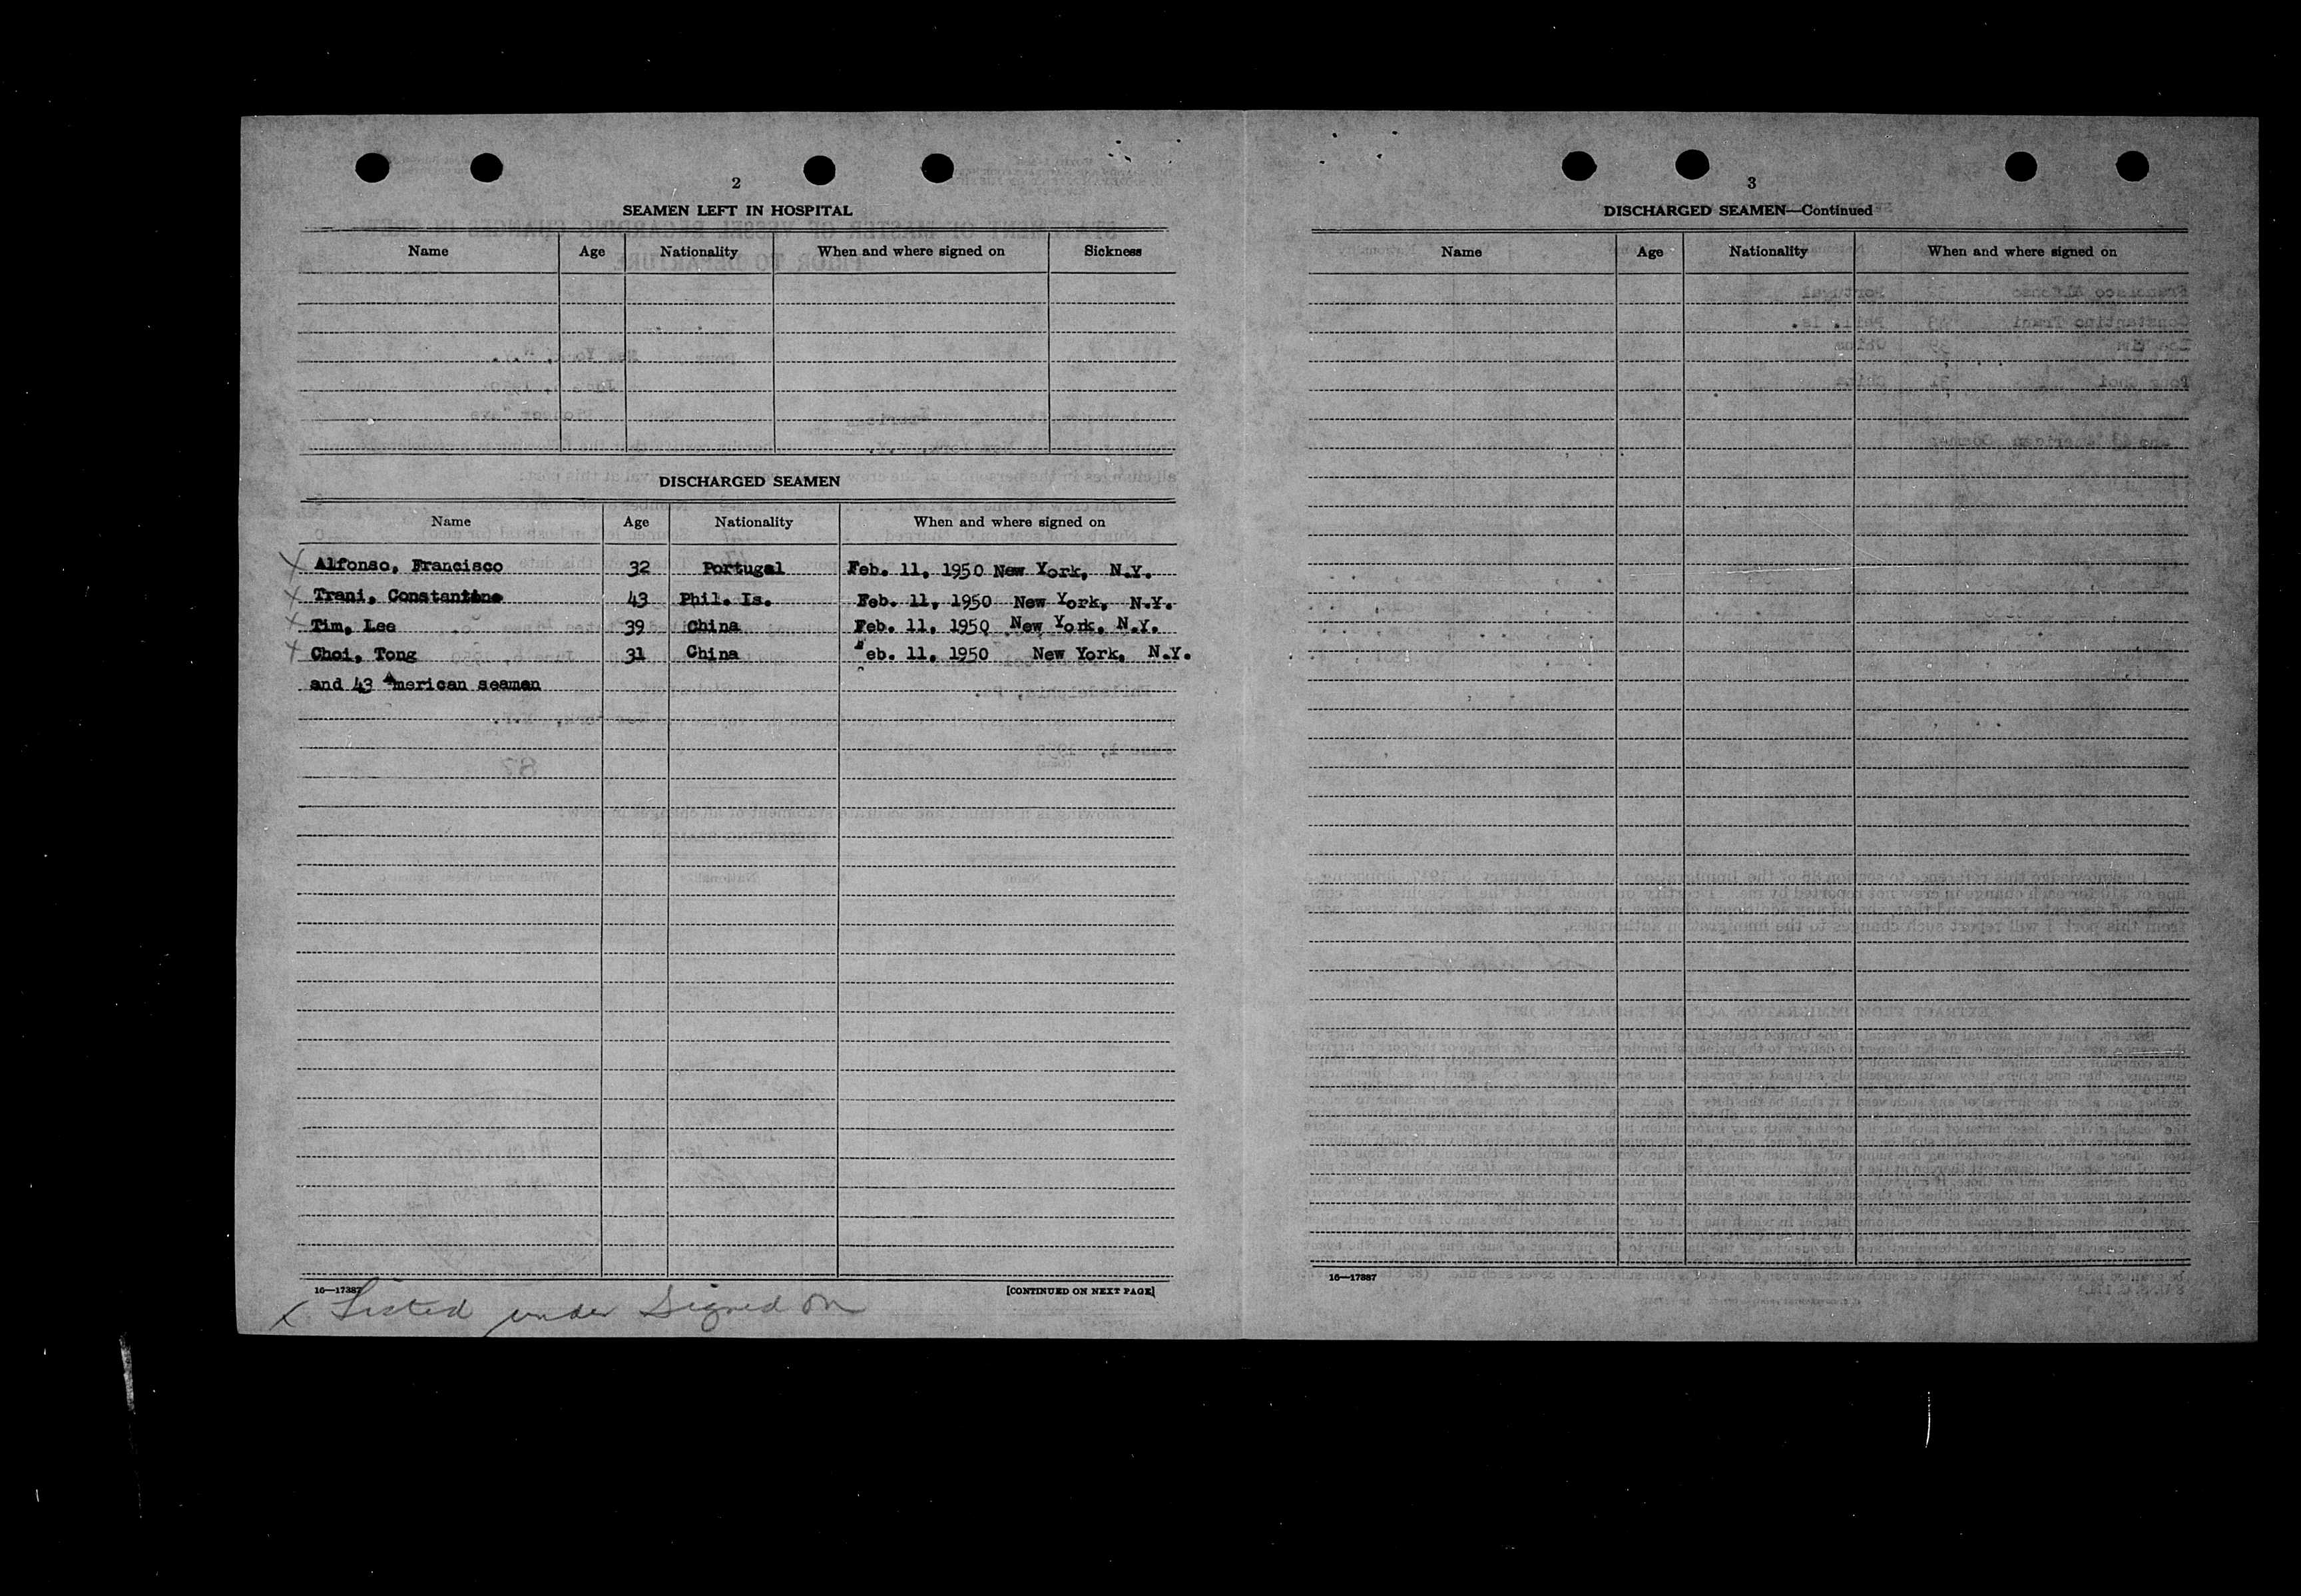 2
SEAMEN LEFT IN HOSPITAL
Name Age Nationality When and where signed on Sickness
DISCHARGED SEAMEN
Name Age Nationality When and where signed on
Alfonso, Francisco 32 Portugal Feb. 11, 1950 New York, N.Y.
Trani, Constantine 43 Phil. Is. Feb. 11, 1950 New York, N.Y.
Tim, Lee 39 China Feb. 11, 1950 New York, N.Y.
Choi, Tong 31 China Feb. 11, 1950 New York, N.Y.
and 43 American seamen
16—17387 [CONTINUED ON NEXT PAGE]
x Listed under Signed on
3
DISCHARGED SEAMEN—Continued
Name Age Nationality When and where signed on
16—17387